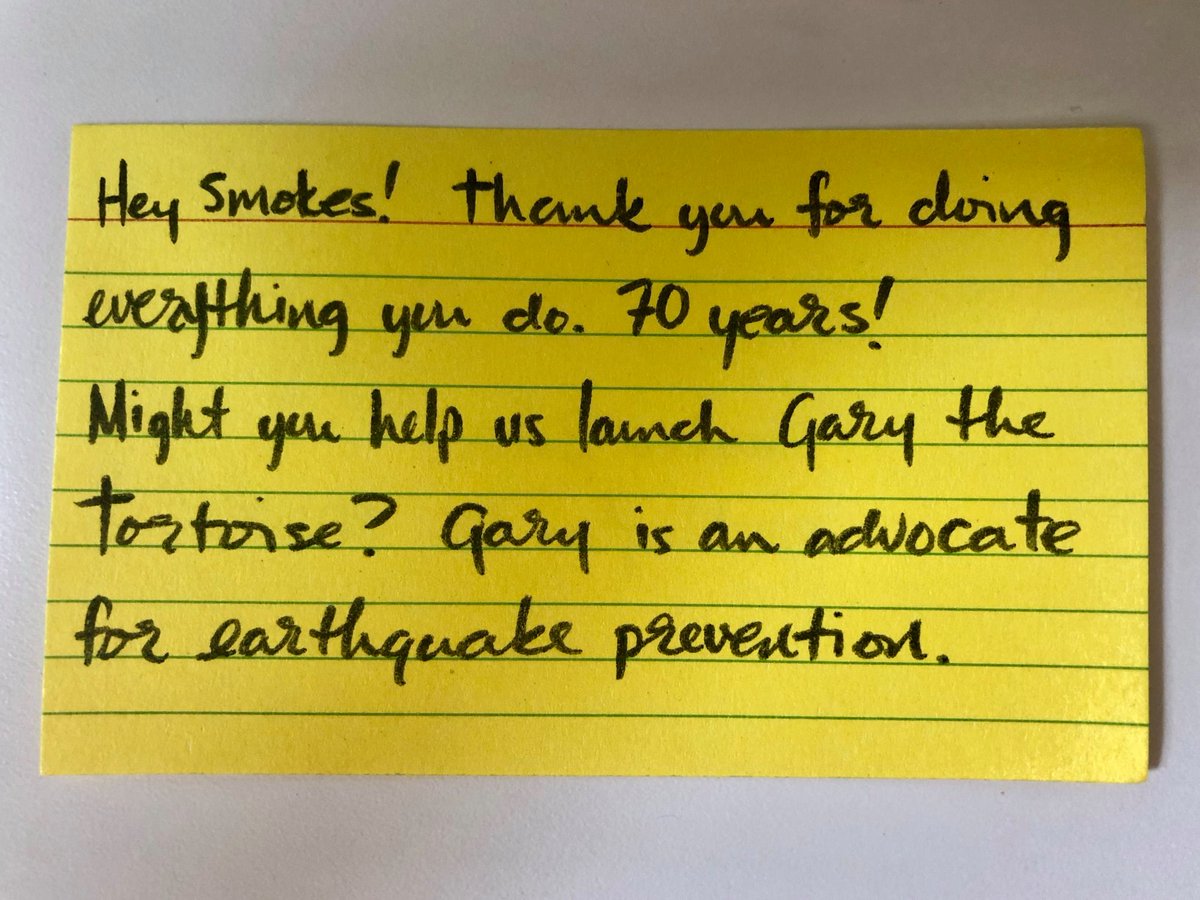 Hey Smokes! Thank you for doing
everything you do. 70 years!
Might you help us launch Gary the
Tortoise? Gary is an advocate
for earthquake prevention.